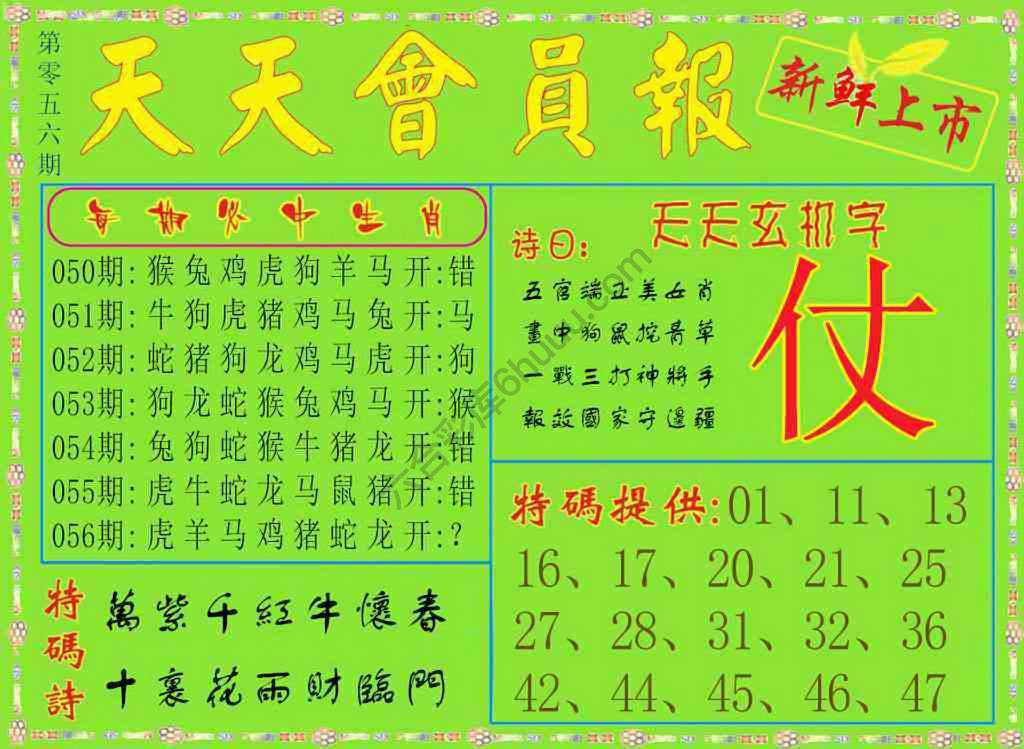 第零五六期
天天會員報
新鮮上市
每期必中生肖
050期: 猴兔鸡虎狗羊马开:错
051期: 牛狗虎猪鸡马兔开:马
052期: 蛇猪狗龙鸡马虎开:狗
053期: 狗龙蛇猴兔鸡马开:猴
054期: 兔狗蛇猴牛猪龙开:错
055期: 虎牛蛇龙马鼠猪开:错
056期: 虎羊马鸡猪蛇龙开:?
天天玄机字
诗曰:
五宫端正美女肖
畫中狗鼠挖青草
一戰三打神將手
報效國家守邊疆
仗
特碼提供:01、11、13
16、17、20、21、25
27、28、31、32、36
42、44、45、46、47
特碼詩
萬紫千紅牛懷春
十裏花雨財臨門
六合彩库6huu.com